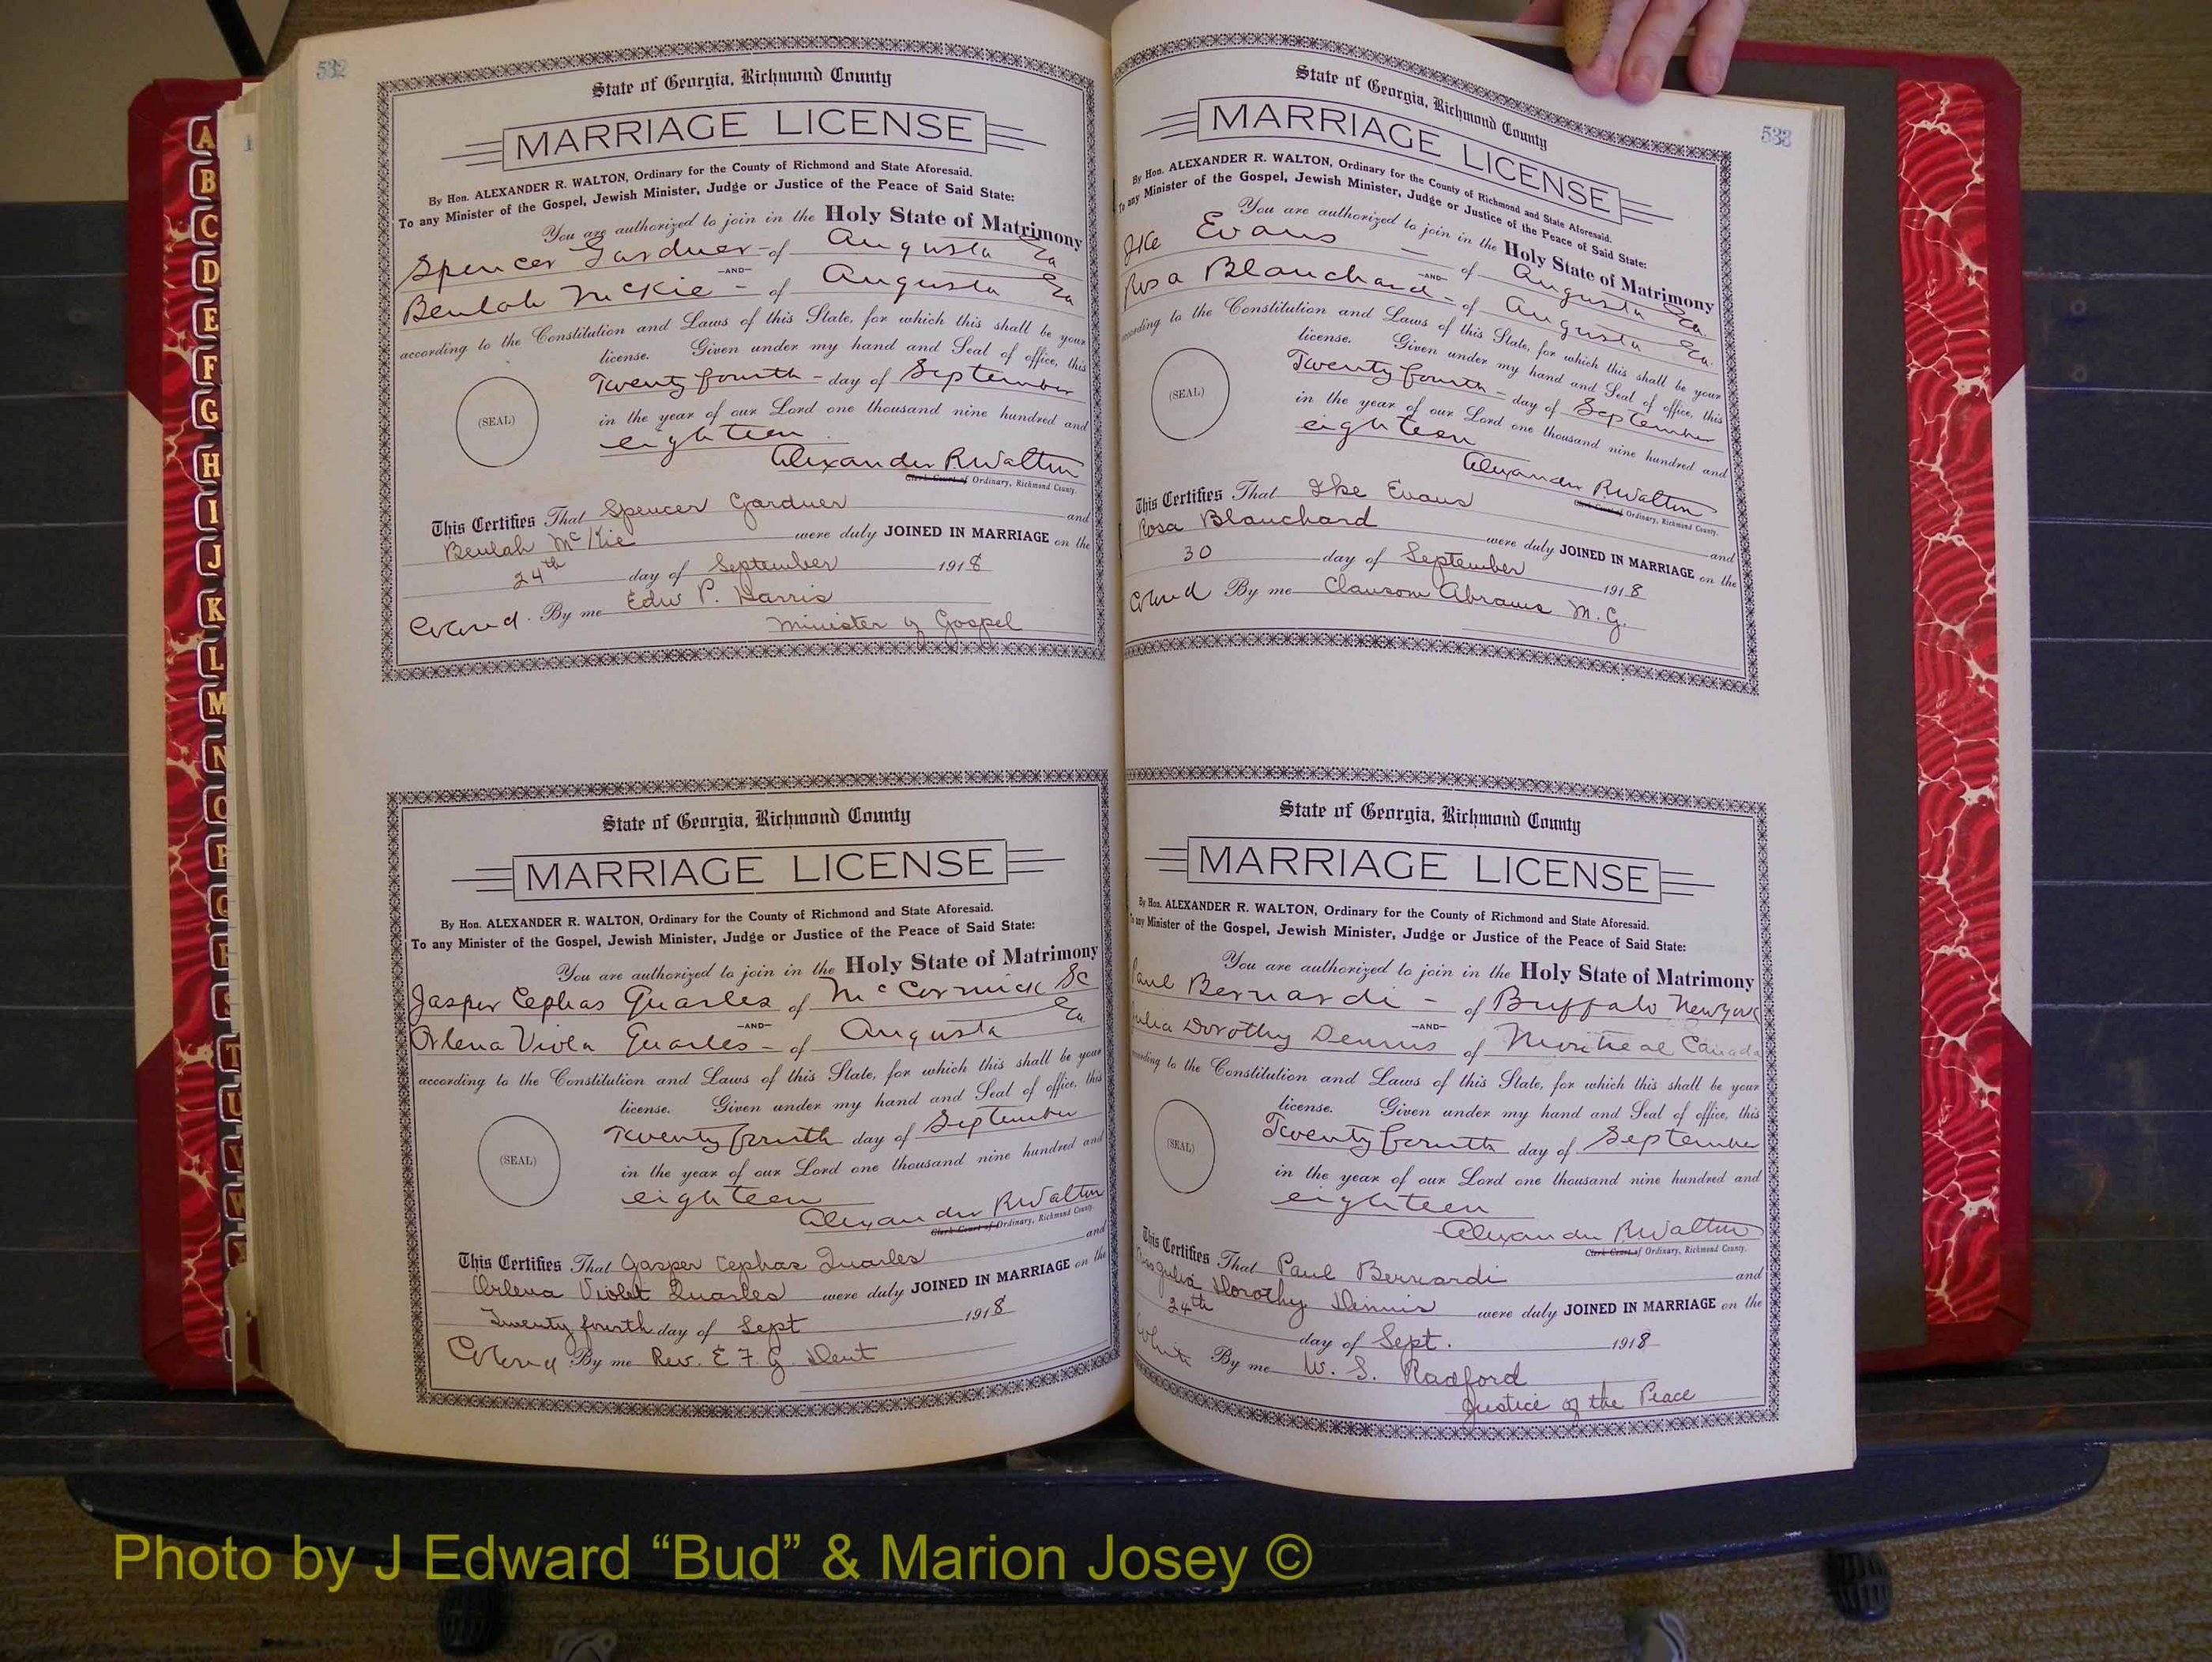 532
State of Georgia, Richmond County
MARRIAGE LICENSE
By Hon. ALEXANDER R. WALTON, Ordinary for the County of Richmond and State Aforesaid.
To any Minister of the Gospel, Jewish Minister, Judge or Justice of the Peace of Said State:
You are authorized to join in the Holy State of Matrimony
Spencer Gardner - of Augusta Ga
-AND-
Beulah McKie - of Augusta Ga
according to the Constitution and Laws of this State, for which this shall be your
license. Given under my hand and Seal of office, this
Twenty fourth - day of September
(SEAL)
in the year of our Lord one thousand nine hundred and
eighteen
Alexander R Walton
Clerk Court of Ordinary, Richmond County.
This Certifies That Spencer Gardner and
Beulah McKie were duly JOINED IN MARRIAGE on the
24th day of September 1918
Colored. By me Edw P. Harris
Minister of Gospel
State of Georgia, Richmond County
MARRIAGE LICENSE
By Hon. ALEXANDER R. WALTON, Ordinary for the County of Richmond and State Aforesaid.
To any Minister of the Gospel, Jewish Minister, Judge or Justice of the Peace of Said State:
You are authorized to join in the Holy State of Matrimony
Jasper Cephas Quarles of McCormick SC
-AND-
Orlena Viola Quarles - of Augusta Ga
according to the Constitution and Laws of this State, for which this shall be your
license. Given under my hand and Seal of office, this
Twenty fourth day of September
(SEAL)
in the year of our Lord one thousand nine hundred and
eighteen
Alexander R Walton
Clerk Court of Ordinary, Richmond County.
This Certifies That Jasper Cephas Quarles and
Orlena Violet Quarles were duly JOINED IN MARRIAGE on the
Twenty fourth day of Sept 1918
Colored By me Rev. E. F. G. Dent
533
State of Georgia, Richmond County
MARRIAGE LICENSE
By Hon. ALEXANDER R. WALTON, Ordinary for the County of Richmond and State Aforesaid.
To any Minister of the Gospel, Jewish Minister, Judge or Justice of the Peace of Said State:
You are authorized to join in the Holy State of Matrimony
Ike Evans - of Augusta Ga.
-AND-
Rosa Blanchard - of Augusta Ga.
according to the Constitution and Laws of this State, for which this shall be your
license. Given under my hand and Seal of office, this
Twenty fourth - day of September
(SEAL)
in the year of our Lord one thousand nine hundred and
eighteen
Alexander R Walton
Clerk Court of Ordinary, Richmond County.
This Certifies That Ike Evans and
Rosa Blanchard were duly JOINED IN MARRIAGE on the
30 day of September 1918
Colored By me Clauson Abrams M.G.
State of Georgia, Richmond County
MARRIAGE LICENSE
By Hon. ALEXANDER R. WALTON, Ordinary for the County of Richmond and State Aforesaid.
To any Minister of the Gospel, Jewish Minister, Judge or Justice of the Peace of Said State:
You are authorized to join in the Holy State of Matrimony
Paul Bernardi - of Buffalo New York
-AND-
Julia Dorothy Dennis of Montreal Canada
according to the Constitution and Laws of this State, for which this shall be your
license. Given under my hand and Seal of office, this
Twenty fourth day of September
(SEAL)
in the year of our Lord one thousand nine hundred and
eighteen
Alexander R Walton
Clerk Court of Ordinary, Richmond County.
This Certifies That Paul Bernardi and
Miss Julia Dorothy Dennis were duly JOINED IN MARRIAGE on the
24th day of Sept. 1918
White By me W. S. Radford
Justice of the Peace
A
B
C
D
E
F
G
H
I
J
K
L
M
N
O
P
Q
R
S
T
U
V
W
Photo by J Edward “Bud” & Marion Josey ©